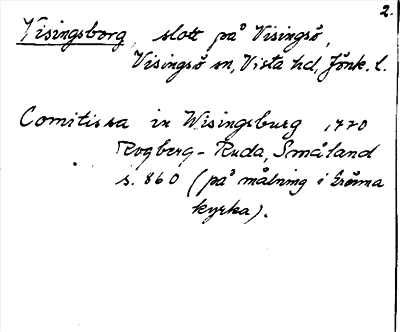 2.
Visingsborg, slott på Visingsö,
Visingsö sn, Vista hd, Jönk. l.
Comitissa in Wisingsburg, 1770
Rogberg - Ruda, Småland
s. 860 (på målning i
kyrka).